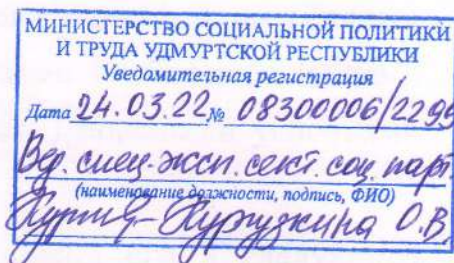 МИНИСТЕРСТВО СОЦИАЛЬНОЙ ПОЛИТИКИ
И ТРУДА УДМУРТСКОЙ РЕСПУБЛИКИ
Уведомительная регистрация
Дата 24.03.22 № 08300006/2299
Вед. спец-эксп. сект. соц. парт.
(наименование должности, подпись, ФИО)
О.В.